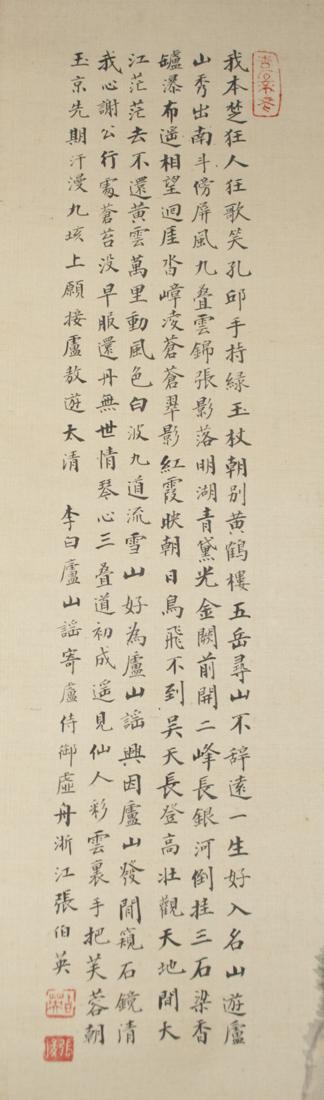 我本楚狂人狂歌笑孔邱手持緑玉杖朝别黄鶴樓五岳尋山不辭遠一生好入名山遊廬
山秀出南斗傍屏風九叠雲錦張影落明湖青黛光金闕前開二峰長銀河倒挂三石梁香
罏瀑布遥相望迴崖沓嶂凌蒼蒼翠影紅霞映朝日鳥飛不到吴天長登高壯觀天地間大
江茫茫去不還黄雲萬里動風色白波九道流雪山好為廬山謡興因廬山發閒窺石鏡清
我心謝公行處蒼苔没早服還丹無世情琴心三叠道初成遥見仙人彩雲裏手把芙蓉朝
玉京先期汗漫九垓上願接盧敖遊太清 李白廬山謡寄盧侍御虚舟浙江張伯英